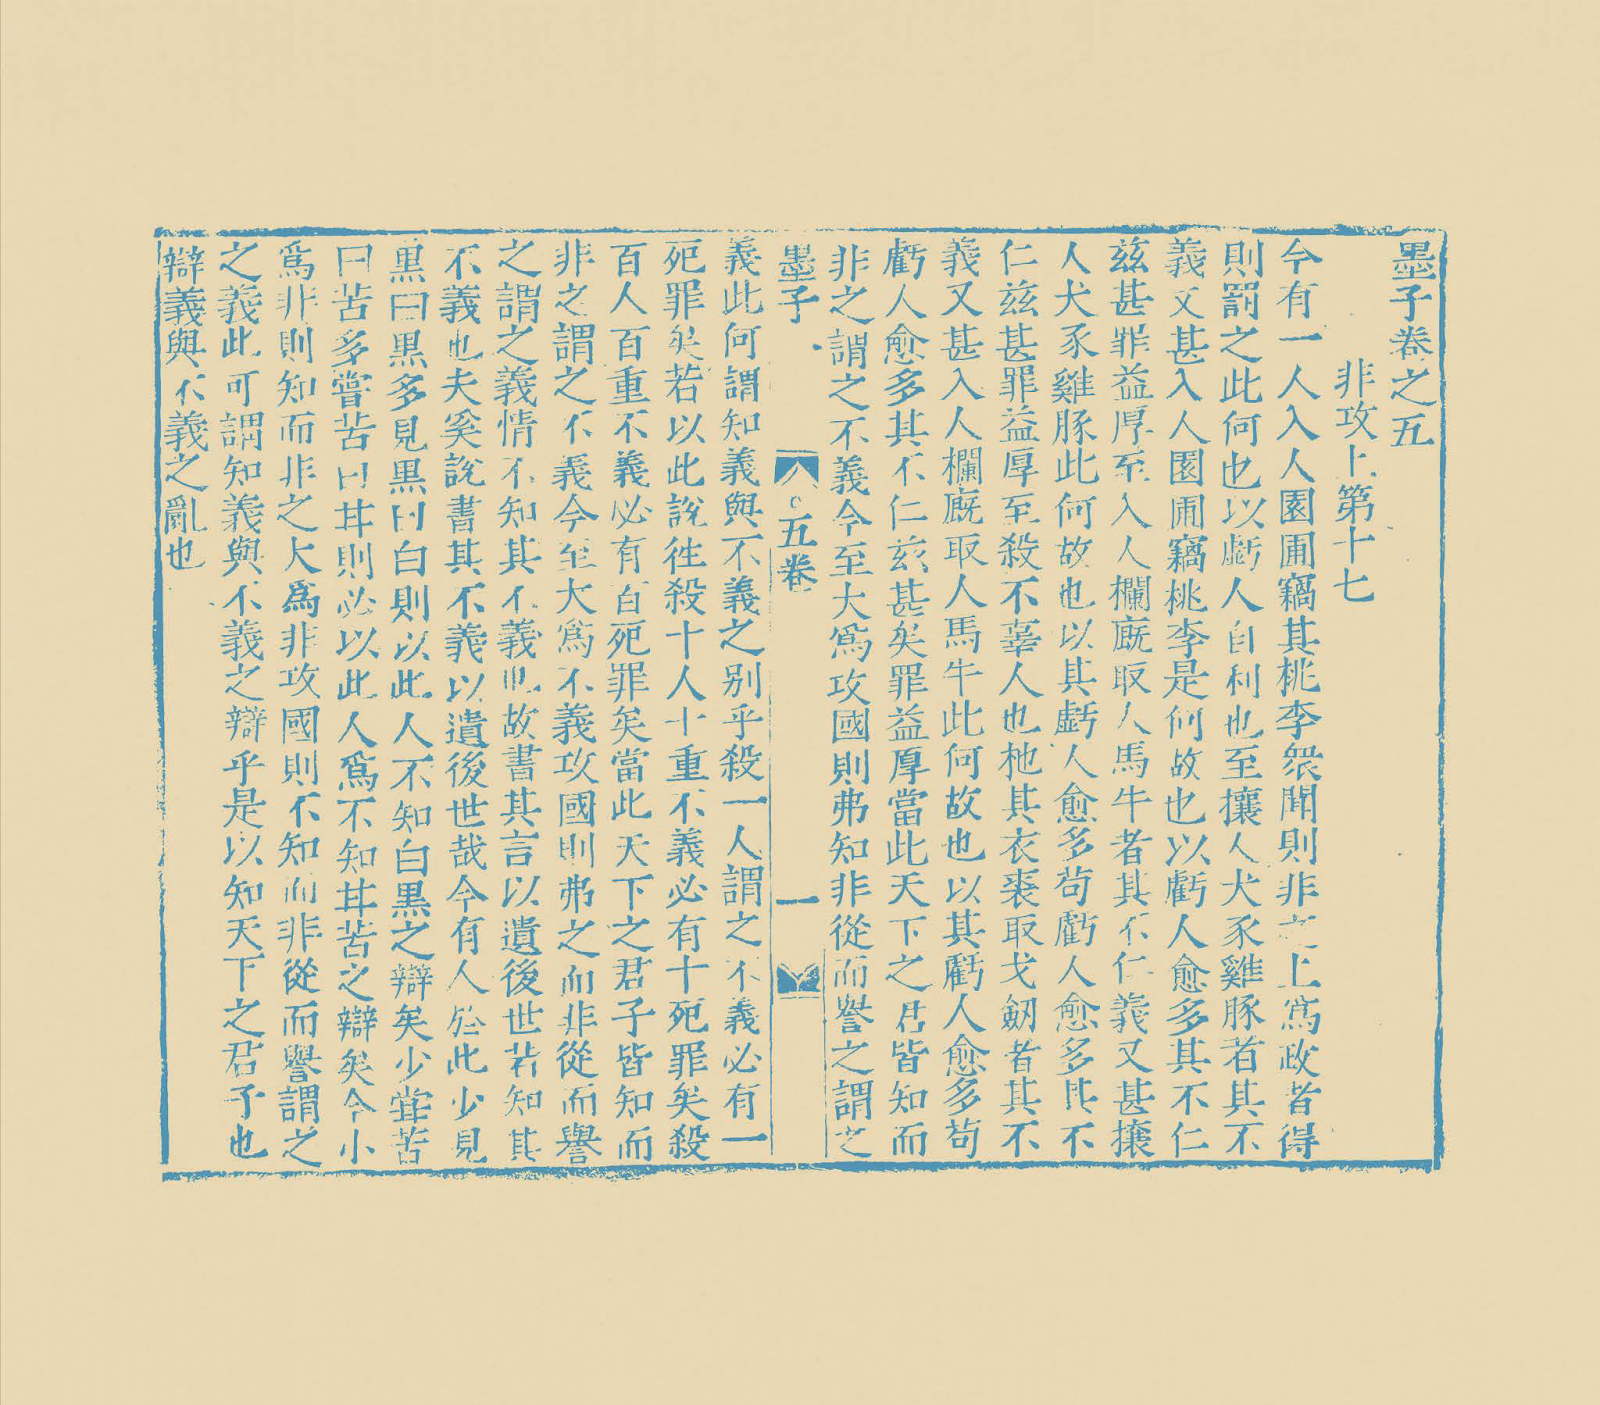 墨子卷之五
非攻上第十七
今有一人入人園圃竊其桃李衆聞則非之上爲政者得
則罰之此何也以虧人自利也至攘人犬豕雞豚者其不
義又甚入人園圃竊桃李是何故也以虧人愈多其不仁
茲甚罪益厚至入人欄廐取人馬牛者其不仁義又甚攘
人犬豕雞豚此何故也以其虧人愈多苟虧人愈多其不
仁茲甚罪益厚至殺不辜人也杝其衣裘取戈劒者其不
義又甚入人欄廐取人馬牛此何故也以其虧人愈多苟
虧人愈多其不仁茲甚矣罪益厚當此天下之君皆知而
非之謂之不義今至大爲攻國則弗知非從而譽之謂之
墨子 五卷 一
義此何謂知義與不義之别乎殺一人謂之不義必有一
死罪矣若以此説徃殺十人十重不義必有十死罪矣殺
百人百重不義必有百死罪矣當此天下之君子皆知而
非之謂之不義今至大爲不義攻國則弗之而非從而譽
之謂之義情不知其不義也故書其言以遺後世若知其
不義也夫奚説書其不義以遺後世哉今有人於此少見
黒曰黒多見黒曰白則以此人不知白黒之辯矣少嘗苦
曰苦多嘗苦曰甘則必以此人爲不知甘苦之辯矣今小
爲非則知而非之大爲非攻國則不知而非從而譽謂之
之義此可謂知義與不義之辯乎是以知天下之君子也
辯義與不義之亂也